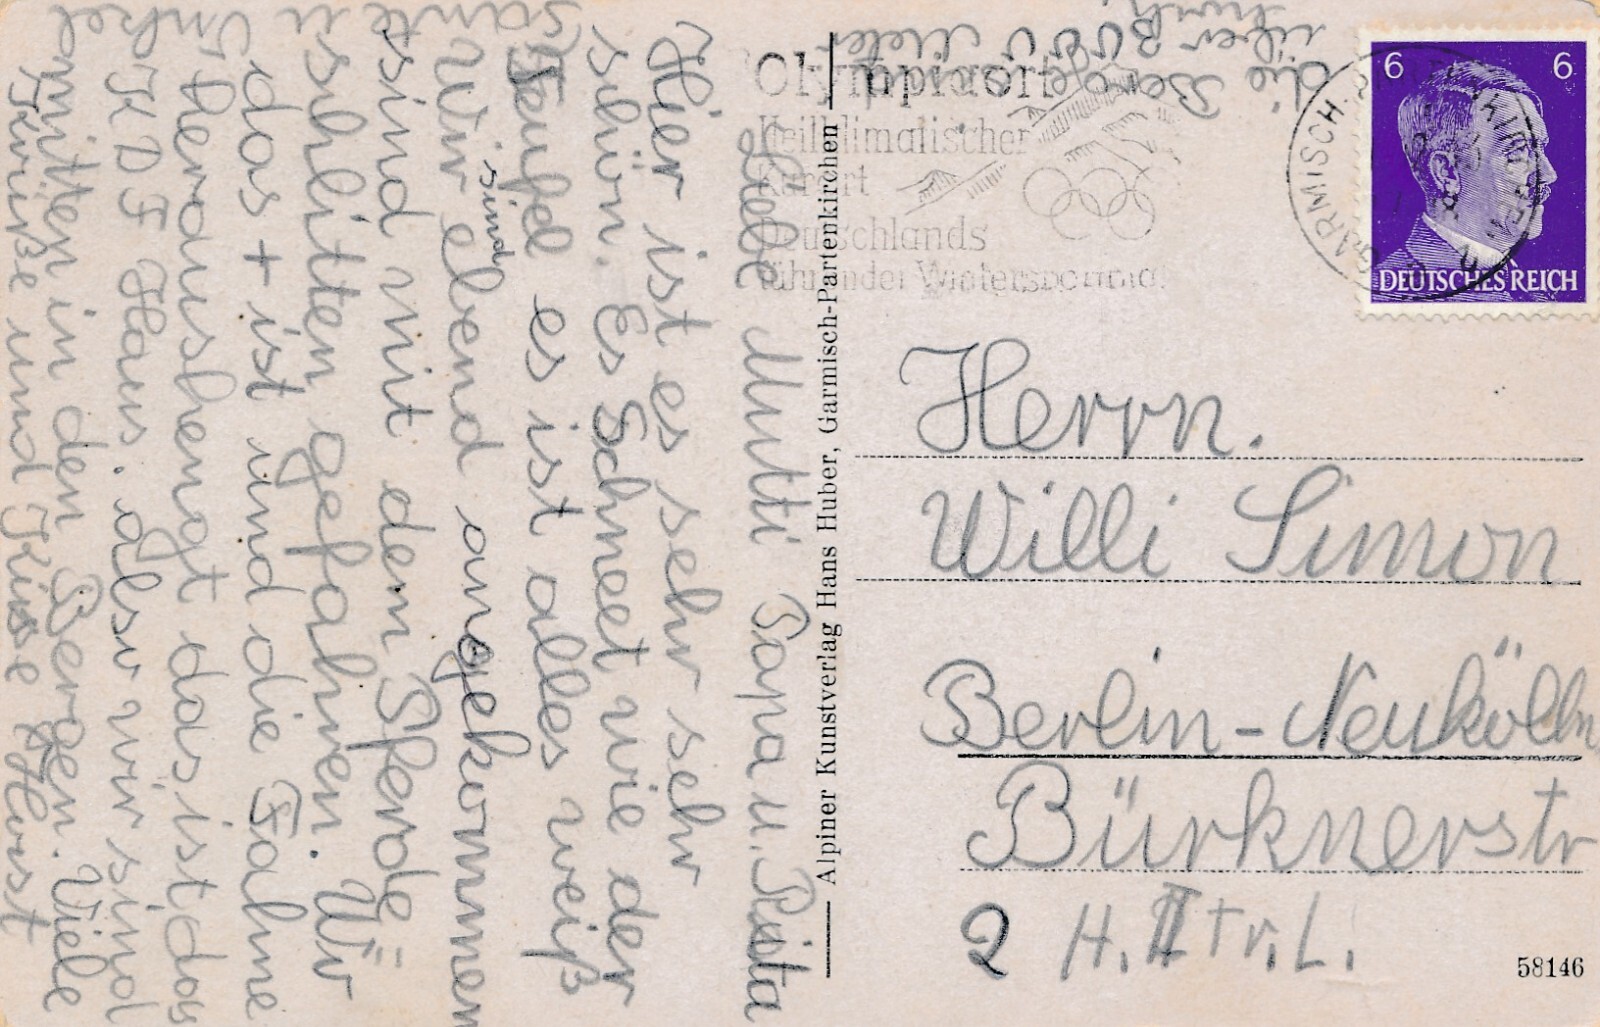 Liebe Mutti Papa u.
Hier ist es sehr sehr
schön. Es Schneet wie der
Teufel es ist alles weiß
Wir sind ebend angekommen
sind mit dem Sferde
schlitten gefahren. Wir
das + ist und die Fahne
Heraushengt das ist das
KDF Haus. also wir sind
mitten in den Bergen. Viele
Grüße und Küsse Horst
die Berge sind
über 3000 Meter
Alpiner Kunstverlag Hans Huber, Garmisch-Partenkirchen
Olympiaort
Heilklimatischer
Kurort
Deutschlands
führender Wintersportplatz
GARMISCH-PARTENKIRCHEN
6 6
DEUTSCHES REICH
Herrn.
Willi Simon
Berlin-Neukölln
Bürknerstr
2 H. II tr. L.
58146